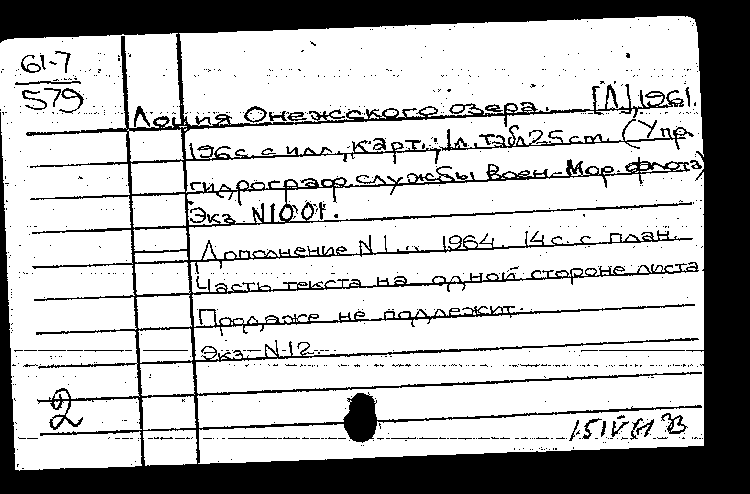 61-7
579
Лоция Онежсского озера. [Л], 1961.
196с. с илл., карт.; 1л. табл 25 cm. (Упр.
гидрограф. службы Воен-Мор. флота)
Экз N1001.
Дополнение N1. 1964. 14 с. с план.
Часть текста на одной стороне листа
Продаже не подлежит.
Экз. N12
2